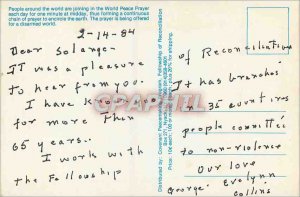 People around the world are joining in the World Peace Prayer
each day for one minute at midday, thus forming a continuous
chain of prayer to encircle the earth. The prayer is being offered
for a disarmed world.
2-14-84
Dear Solange-
IT was a pleasure
to hear from you.
I have
for more Than
65 years..
I work with
the Fellowship
Distributed by: Covenant Peacemaking Program, Fellowship of Reconciliation
Box 271, Nyack,
Price: 10¢ each; 100 or more, please add 20% for shipping.
of Reconciliation
It has branches
in 35 countries
people committed
to non-violence
Our love
George Evelynn
Collins
DELCAMPE